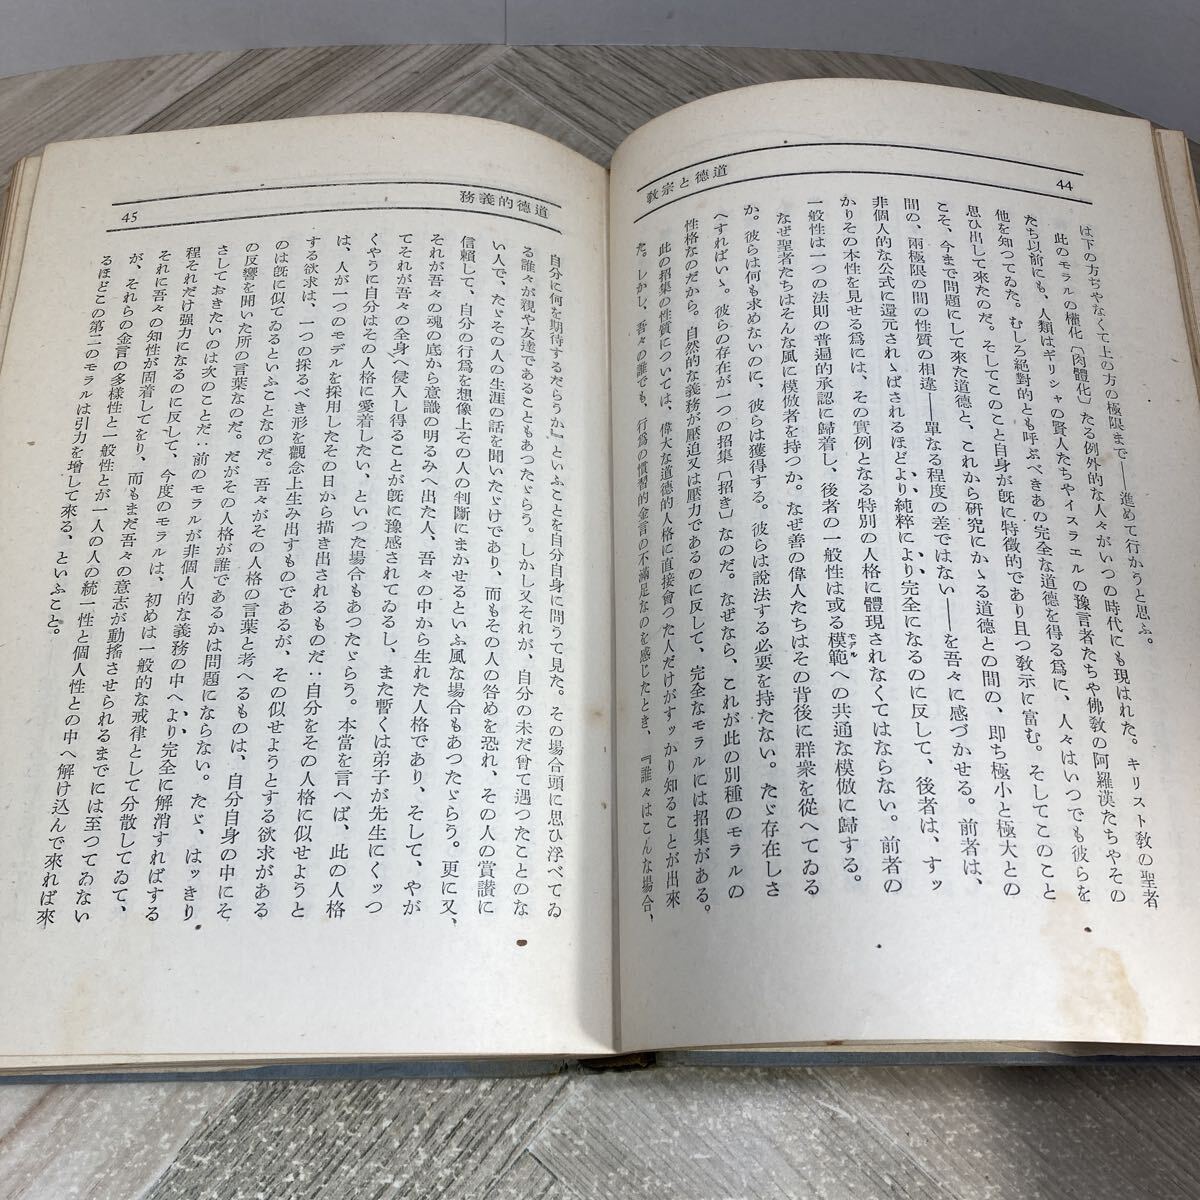 道德と宗教
44
は下の方ぢやなくて上の方の極限まで——進めて行かうと思ふ。
此のモラルの權化〔肉體化〕たる例外的な人々がいつの時代にも現はれた。キリスト教の聖者
たち以前にも、人類はギリシャの賢人たちやイスラエルの豫言者たちや佛教の阿羅漢たちやその
他を知つてゐた。むしろ絕對的とも呼ぶべきあの完全な道德を得る爲に、人々はいつでも彼らを
思ひ出して來たのだ。そしてこのこと自身が既に特徵的であり且つ敎示に富む。そしてこのこと
こそ、今まで問題にして來た道德と、これから研究にかゝる道德との間の、即ち極小と極大との
間の、兩極限の間の性質の相違——單なる程度の差ではない——を吾々に感づかせる。前者は、
非個人的な公式に還元されゝばされるほどより純粹により完全になるのに反して、後者は、すッ
かりその本性を見せる爲には、その實例となる特別の人格に體現されなくてはならない。前者の
一般性は一つの法則の普遍的承認に歸着し、後者の一般性は或る模範モデルへの共通な模倣に歸する。
なぜ聖者たちはそんな風に模倣者を持つか。なぜ善の偉人たちはその背後に群衆を從へてゐる
か。彼らは何も求めないのに、彼らは獲得する。彼らは說法する必要を持たない。たゞ存在しさ
へすればいゝ。彼らの存在が一つの招集〔招き〕なのだ。なぜなら、これが此の別種のモラルの
性格なのだから。自然的な義務が壓迫又は壓力であるのに反して、完全なモラルには招集がある。
此の招集の性質については、偉大な道德的人格に直接會つた人だけがすッかり知ることが出來
た。しかし、吾々の誰でも、行爲の慣習的金言の不滿足なのを感じたとき、『誰々はこんな場合、
道德的義務
45
自分に何を期待するだらうか』といふことを自分自身に問うて見た。その場合頭に思ひ浮べてゐ
る誰々が親や友達であることもあつたゞらう。しかし又それが、自分の未だ曾て遇つたことのな
い人で、たゞその人の生涯の話を聞いたゞけであり、而もその人の咎めを恐れ、その人の賞讃に
信賴して、自分の行爲を想像上その人の判斷にまかせるといふ風な場合もあつたゞらう。更に又、
それが吾々の魂の底から意識の明るみへ出た人、吾々の中から生れた人格であり、そして、やが
てそれが吾々の全身へ侵入し得ることが既に豫感されてゐるし、また暫くは弟子が先生にくッつ
くやうに自分はその人格に愛着したい、といつた場合もあつたゞらう。本當を言へば、此の人格
は、人が一つのモデルを採用したその日から描き出されるものだ：自分をその人格に似せようと
する欲求は、一つの採るべき形を觀念上生み出すものであるが、その似せようとする欲求がある
のは既に似てゐるといふことなのだ。吾々がその人格の言葉と考へるものは、自分自身の中にそ
の反響を聞いた所の言葉なのだ。だがその人格が誰であるかは問題にならない。たゞ、はッきり
さしておきたいのは次のことだ：前のモラルが非個人的な義務の中へより完全に解消すればする
程それだけ强力になるのに反して、今度のモラルは、初めは一般的な戒律として分散してゐて、
それに吾々の知性が固着してをり、而もまだ吾々の意志が動搖させられるまでには至つてゐない
が、それらの金言の多樣性と一般性とが一人の人の統一性と個人性との中へ解け込んで來れば來
るほどこの第二のモラルは引力を增して來る、といふこと。